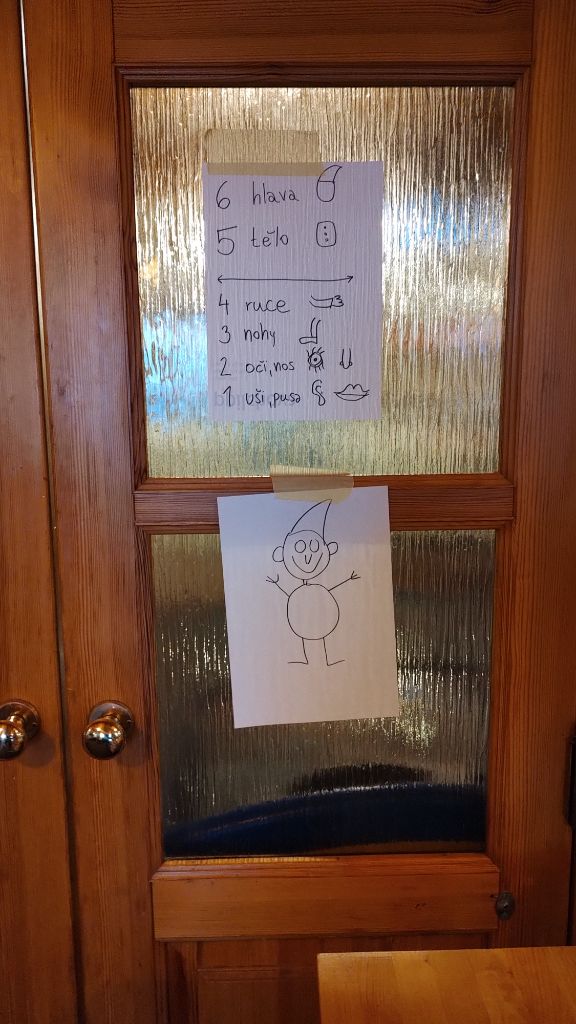 6 hlava
5 tělo
4 ruce
3 nohy
2 oči, nos
1 uši, pusa